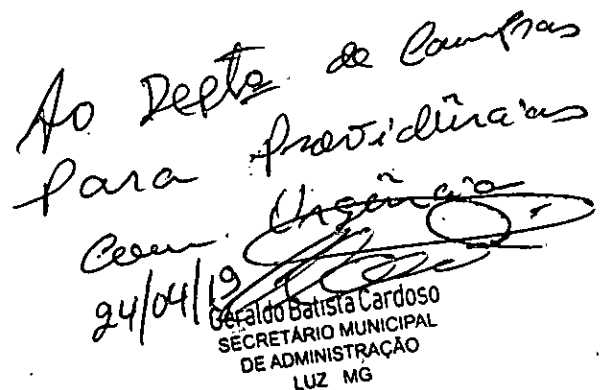 Ao Depto. de Compras
Para Providências
Com Urgência
24/04/19
Geraldo Batista Cardoso
SECRETÁRIO MUNICIPAL
DE ADMINISTRAÇÃO
LUZ MG